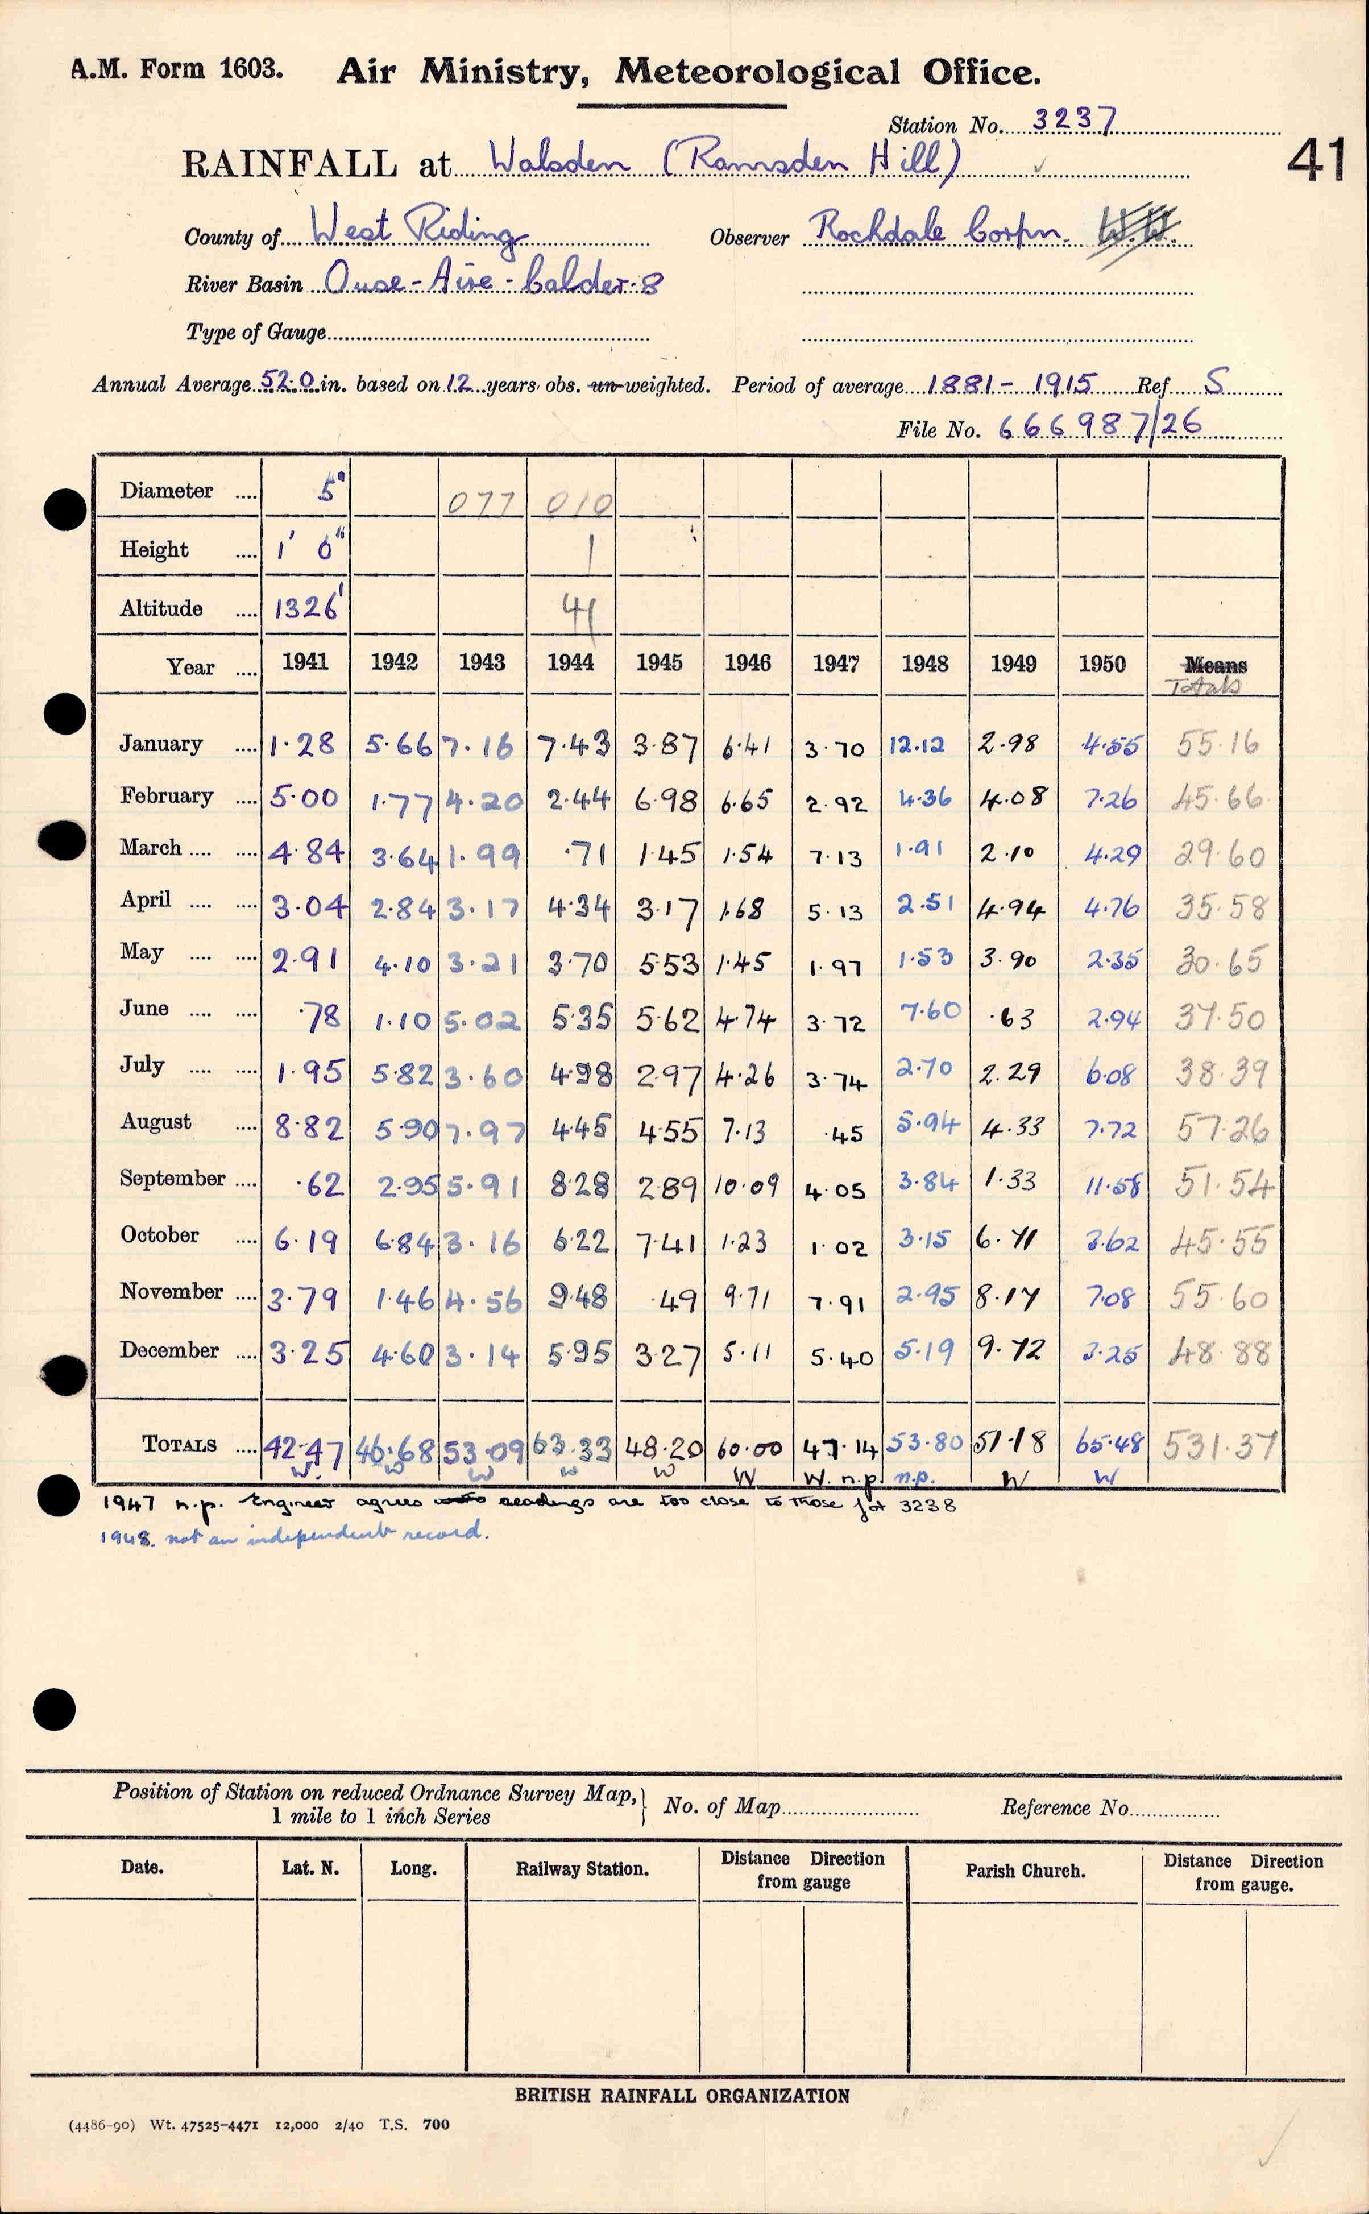 A.M. Form 1603. Air Ministry, Meteorological Office.
Station No. 3237
41
RAINFALL at Walsden (Ramsden Hill) ✓
County of West Riding Observer Rochdale Corpn. W.W.
River Basin Ouse-Aire-Calder-8
Type of Gauge
Annual Average 52.0 in. based on 12 years obs. un-weighted. Period of average 1881-1915 Ref S
File No. 666987/26
Diameter .... 5" 077 010
Height .... 1' 0" 1
Altitude .... 1326' 41
Year .... 1941 1942 1943 1944 1945 1946 1947 1948 1949 1950 Means
Totals
January .... 1.28 5.66 7.16 7.43 3.87 6.41 3.70 12.12 2.98 4.55 55.16
February .... 5.00 1.77 4.20 2.44 6.98 6.65 2.92 4.36 4.08 7.26 45.66
March .... .... 4.84 3.64 1.99 .71 1.45 1.54 7.13 1.91 2.10 4.29 29.60
April .... .... 3.04 2.84 3.17 4.34 3.17 1.68 5.13 2.51 4.94 4.76 35.58
May .... .... 2.91 4.10 3.21 3.70 5.53 1.45 1.97 1.53 3.90 2.35 30.65
June .... .... .78 1.10 5.02 5.35 5.62 4.74 3.72 7.60 .63 2.94 37.50
July .... .... 1.95 5.82 3.60 4.98 2.97 4.26 3.74 2.70 2.29 6.08 38.39
August .... 8.82 5.90 7.97 4.45 4.55 7.13 .45 5.94 4.33 7.72 57.26
September .... .62 2.95 5.91 8.28 2.89 10.09 4.05 3.84 1.33 11.58 51.54
October .... 6.19 6.84 3.16 6.22 7.41 1.23 1.02 3.15 6.71 3.62 45.55
November .... 3.79 1.46 4.56 9.48 .49 9.71 7.91 2.95 8.17 7.08 55.60
December .... 3.25 4.60 3.14 5.95 3.27 5.11 5.40 5.19 9.72 3.25 48.88
TOTALS .... 42.47 46.68 53.09 63.33 48.20 60.00 47.14 53.80 51.18 65.48 531.37
W. W W W W W W. n.p. n.p. W W
1947 n.p. Engineer agrees readings are too close to those for 3238
1948. not an independent record.
Position of Station on reduced Ordnance Survey Map,
1 mile to 1 inch Series
No. of Map Reference No.
Date. Lat. N. Long. Railway Station. Distance Direction from gauge Parish Church. Distance Direction from gauge.
BRITISH RAINFALL ORGANIZATION
(4486-90) Wt. 47525-4471 12,000 2/40 T.S. 700